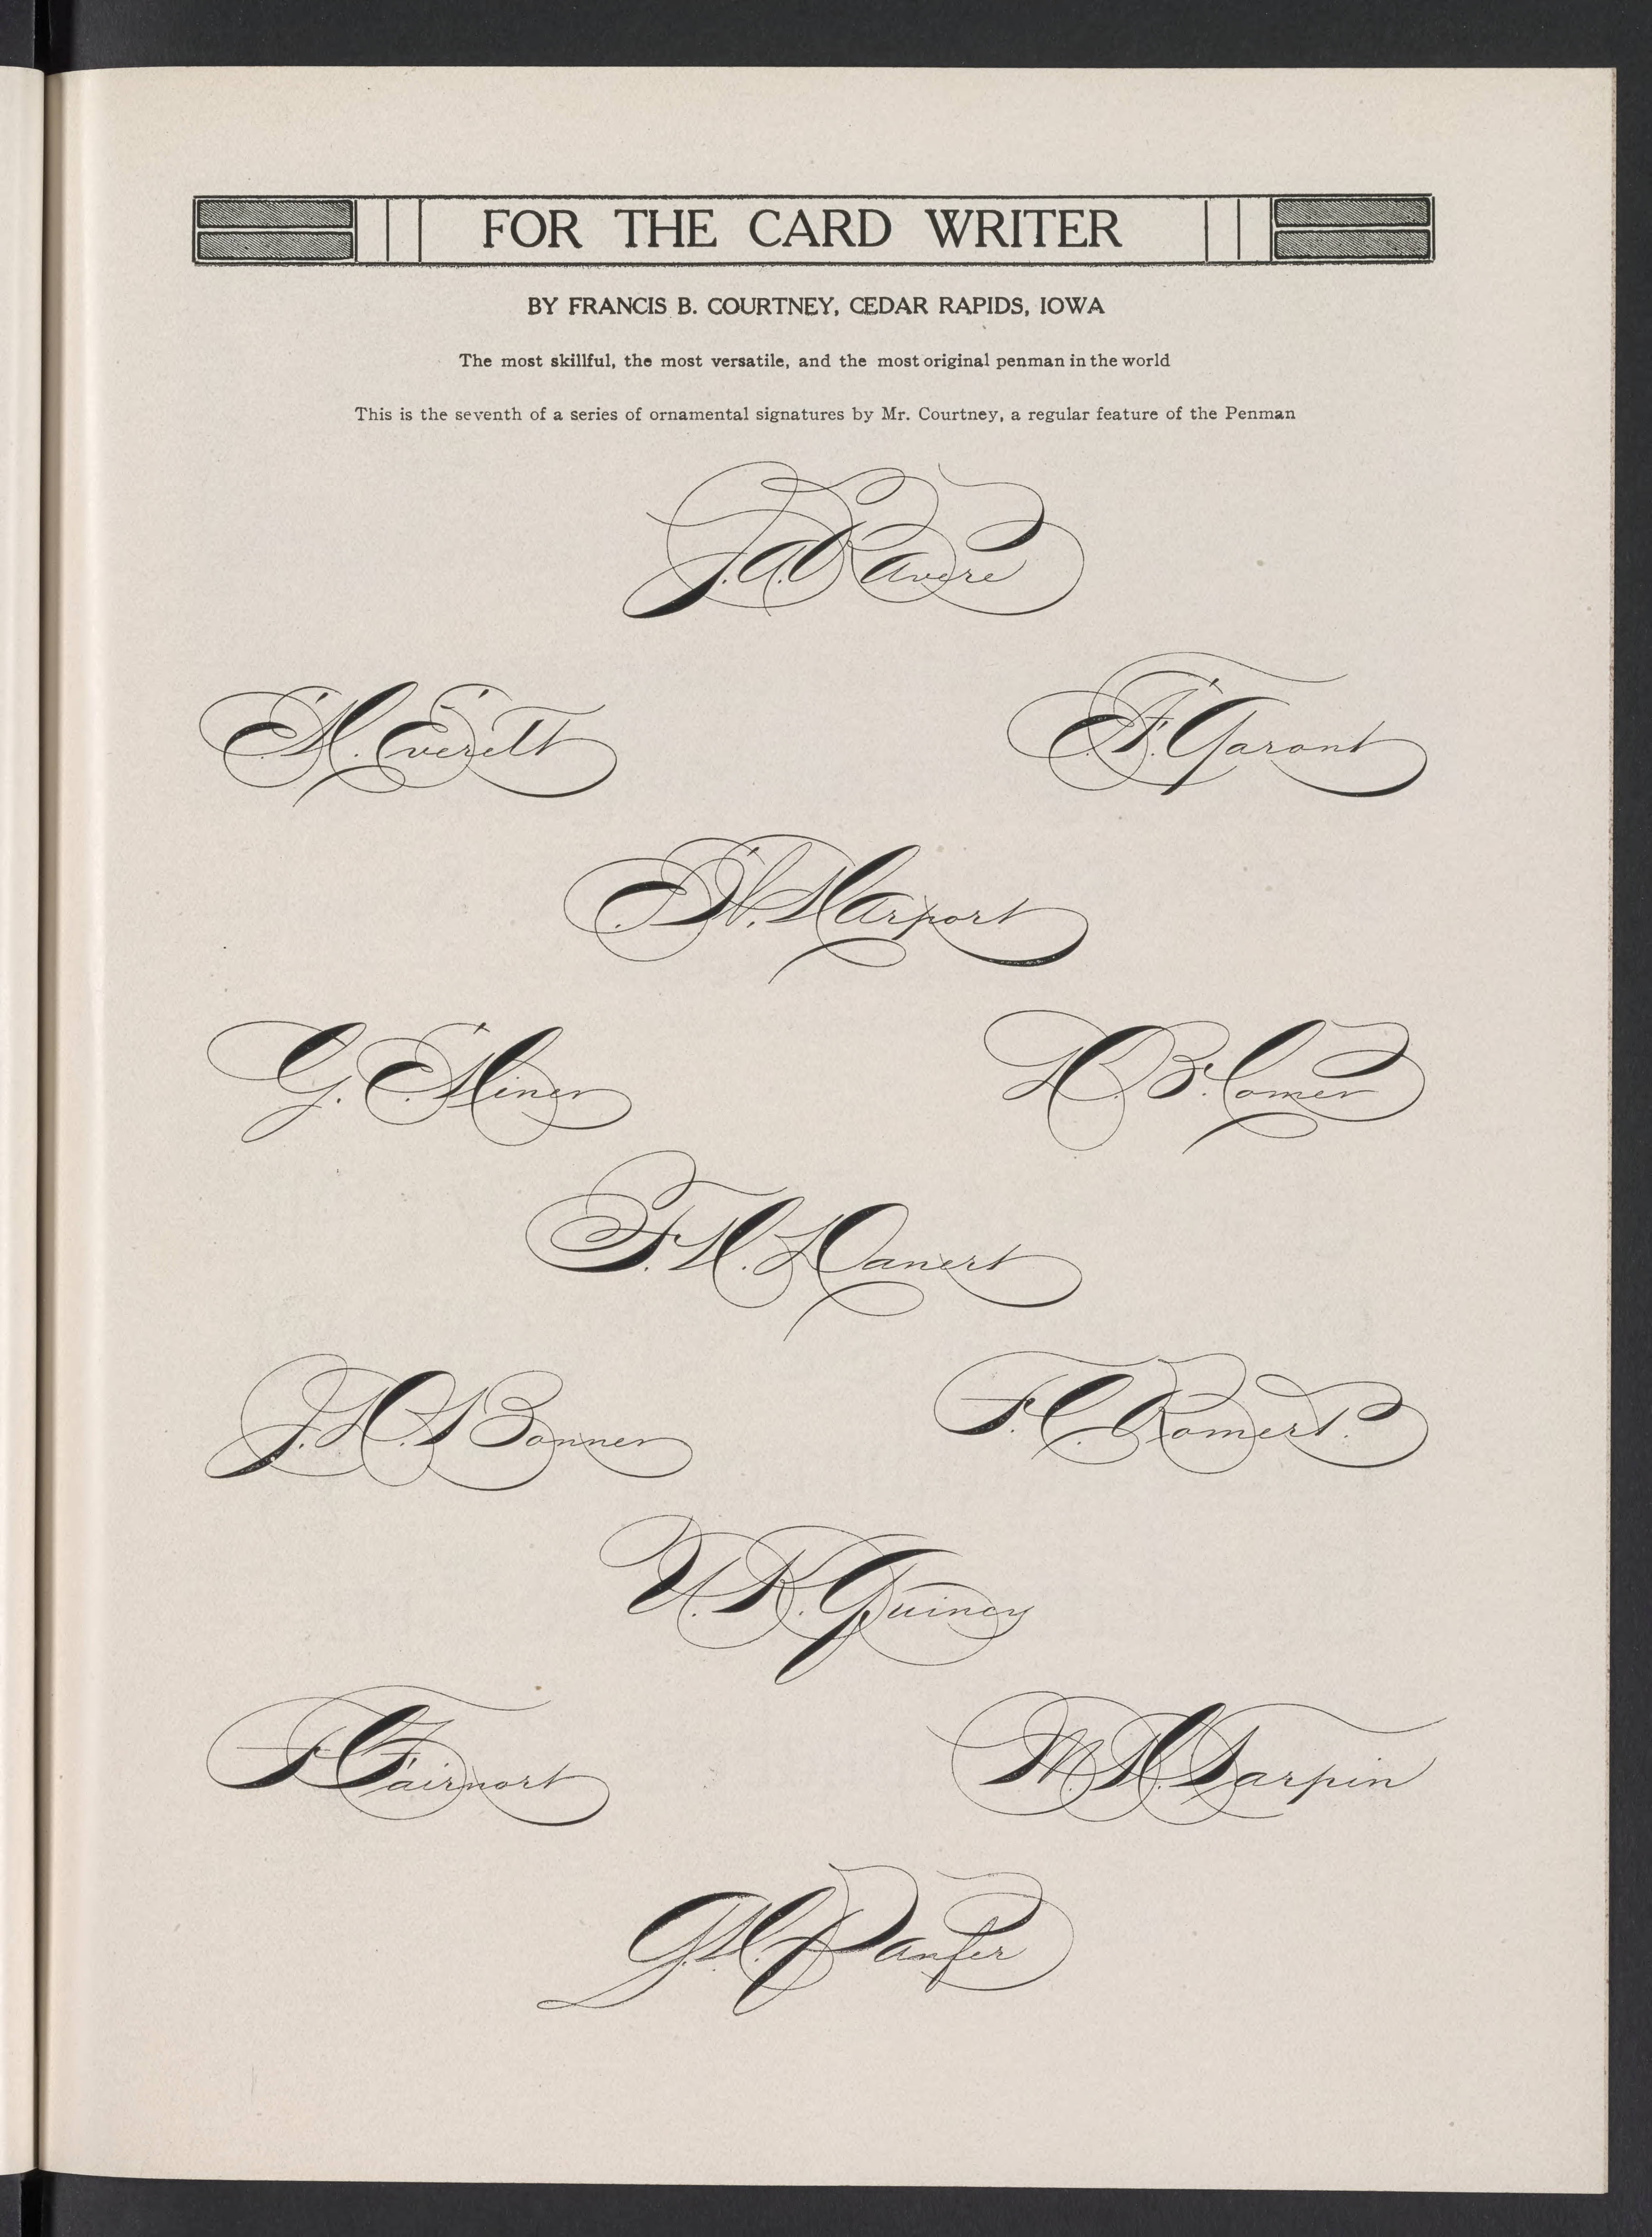 FOR THE CARD WRITER
BY FRANCIS B. COURTNEY, CEDAR RAPIDS, IOWA
The most skillful, the most versatile, and the most original penman in the world
This is the seventh of a series of ornamental signatures by Mr. Courtney, a regular feature of the Penman
J. A. Ravere
E. M. Everett
A. F. Garant
Harport
G. E. Miner
D. B. Comer
F. M. Danert
J. D. Bonner
F. C. Romert.
U. R. Quincy
F. Fairmort
M. M. Tarpin
G. M. Panfer